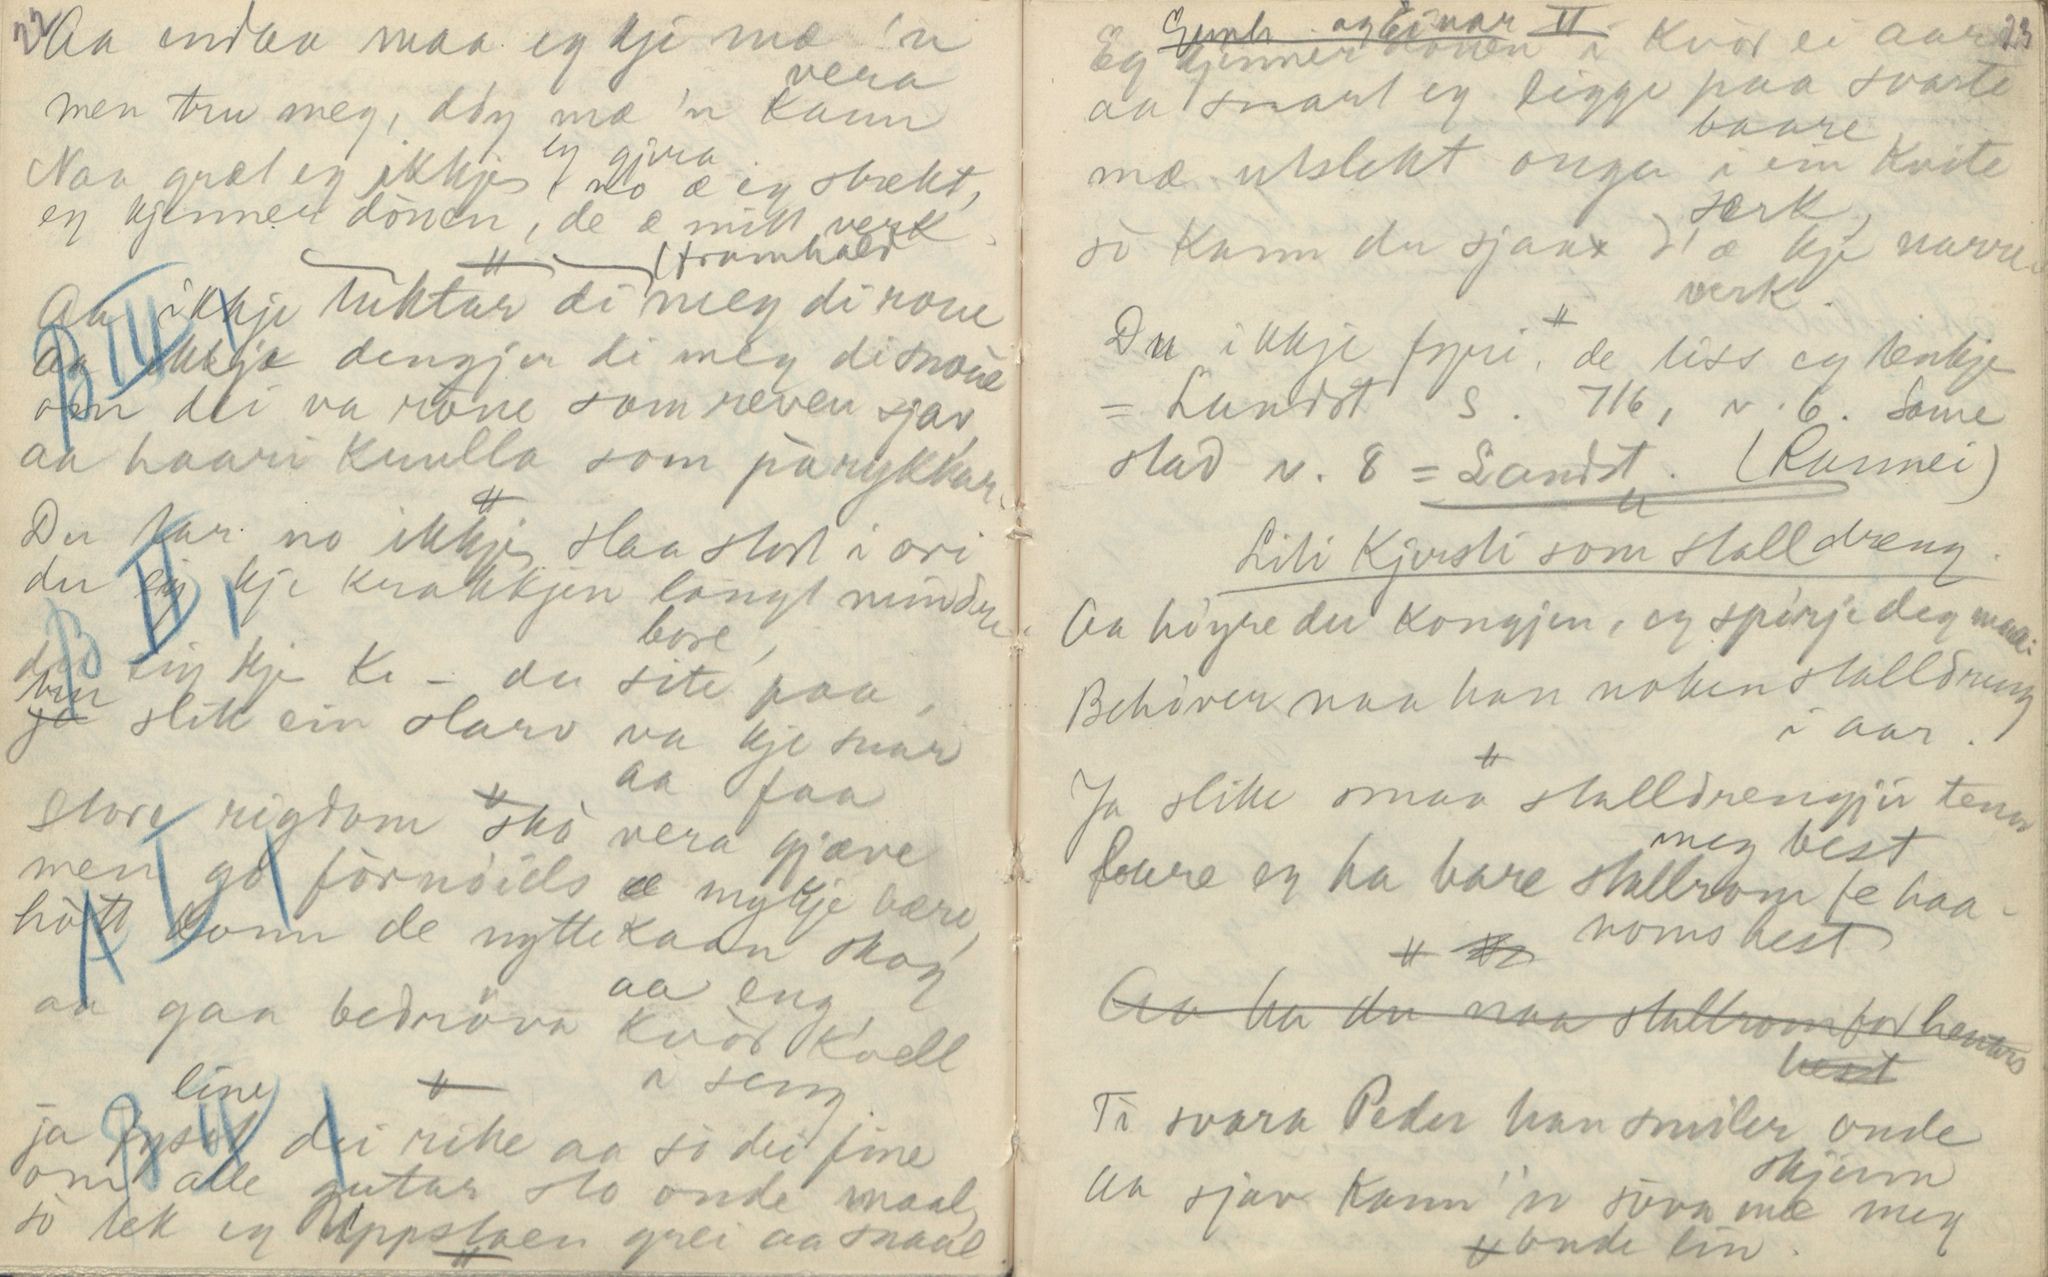 22
Aa endaa maa eg kje mæ 'n
vera
men tru meg, döy mæ 'n kann
eg gjera
Naa græt eg ikkje, no æ eg strekt,
eg kjenner dönen, de æ mitt verk.
(framhald
#
Aa ikkje luktar di meg di roue
aa ikkje dengjer di meg di snoue
om dei va röue som reven sjav,
aa haari krulla som parykkar.
#
Du har no ikkje slaa stort i ori
du eig kje krakkjen langt mindre
bore,
du eig kje ke - du site paa,
ja slik ein slarv va kje snar
aa faa
#
Store rigdom sko vera gjæve
men go förnöiels æ mykje bære,
hott konn de nytte kaan skog
aa eng,
aa gaa bedröva kvör kvell
i seng
#
line
ja dei rike aa so dei fine
om alle gutar sto onde maal,
so lek eg Uppstaen grei aa snaal
#
B III 1
B II 1
A I 1
B II 1
23
og Eivar II
Eg kjenner dönen i kvör ei aar
aa snart eg ligge paa svarte
baare
mæ utslekt onge i ein kvite
særk,
so kann du sjaa d' æ kje narre
verk.
#
Du ikkje fyri, de liss eg tenkje
= Landst S. 716, v. 6. Same
stad v. 8 = Landst. (Rannei)
#
Liti Kjersti som stalldræng.
Aa höyre du kongjen, eg spörje deg maa:
Behöver naa han noken stalldreng
i aar.
#
Ja slike smaa stalldrengjir tener
meg best
bare eg ha bare stallrom te haa-
noms hest
# #
Aa ha du naa stallrom for hennes
hest
Ti svara Peder han smiler onde
skjinn
Aa sjav kann 'n söva mæ meg
onde lin.
#